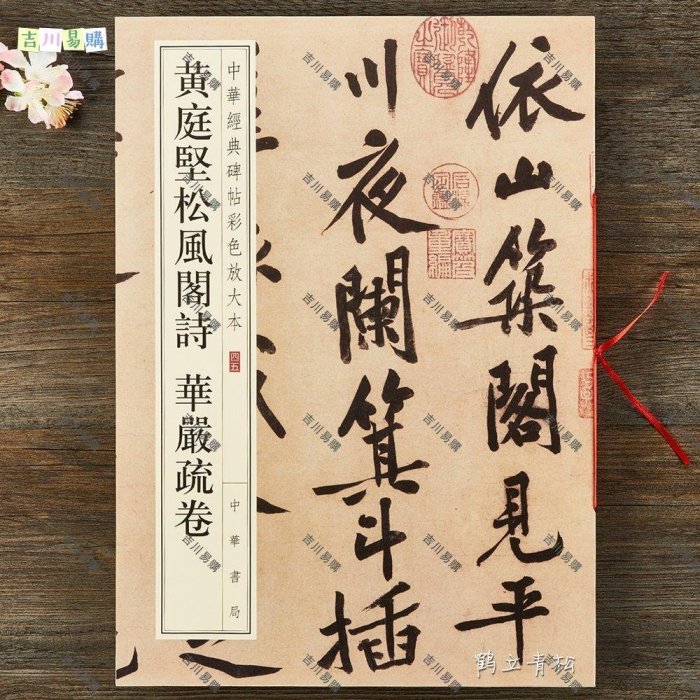 吉川易購
中華經典碑帖彩色放大本
四五
中華書局
黄庭堅松風閣詩 華嚴疏卷
依山築閣見平
川夜闌箕斗插
鶴立青松